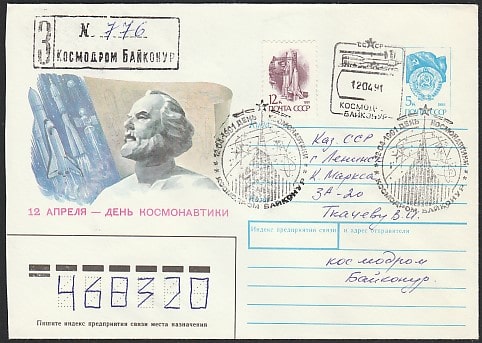 З
N 776
Космодром Байконур
12 К
ПОЧТА СССР
СССР
12 04 91
КОСМОДРОМ
БАЙКОНУР
5 К
ПОЧТА СССР
12.04.1991 ДЕНЬ КОСМОНАВТИКИ
КОСМОДРОМ БАЙКОНУР
12.04.1991 ДЕНЬ КОСМОНАВТИКИ
КОСМОДРОМ БАЙКОНУР
12 АПРЕЛЯ — ДЕНЬ КОСМОНАВТИКИ
Каз. ССР
г. Ленинск
К. Маркса
3А-20
Ткачеву В.И.
Индекс предприятия связи и адрес отправителя
космодром
Байконур.
468320
Пишите индекс предприятия связи места назначения